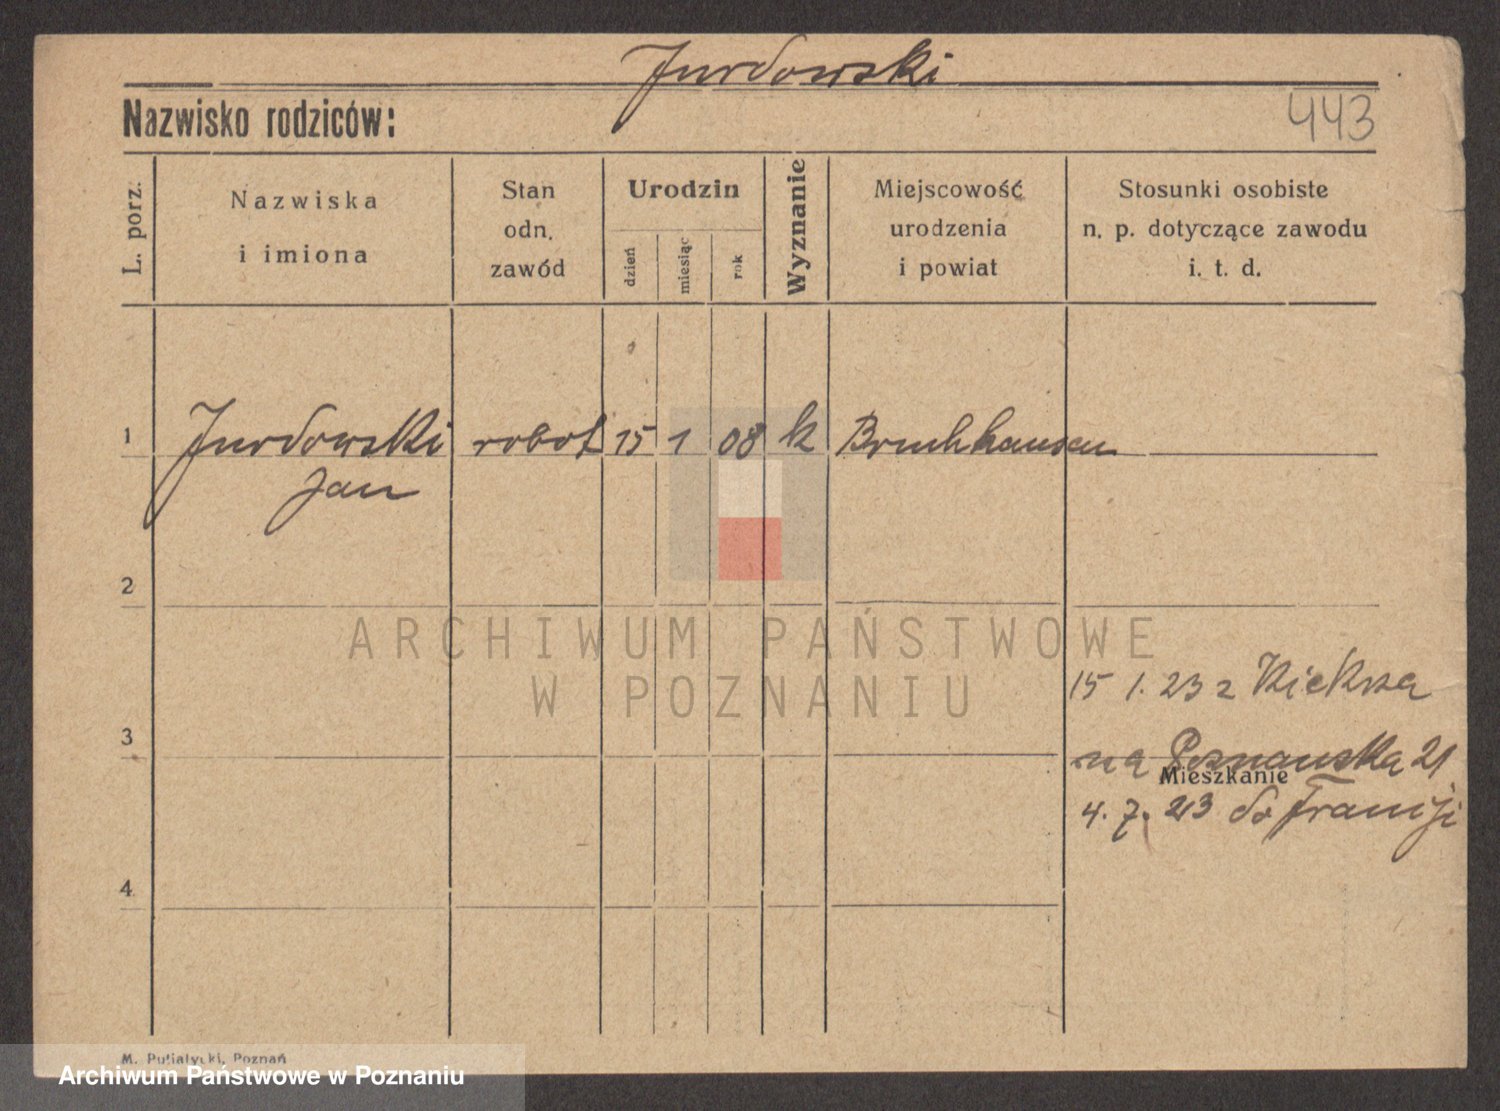 Jurdowski
Nazwisko rodziców:
443
L. porz.
Nazwiska
i imiona
Stan
odn.
zawód
Urodzin
dzień
miesiąc
rok
Wyznanie
Miejscowość
urodzenia
i powiat
Stosunki osobiste
n. p. dotyczące zawodu
i. t. d.
1 Jurdowski robot 15 1 08 k Bruchhausen
Jan
2
ARCHIWUM PAŃSTWOWE
W POZNANIU
15 1. 23 z Kiekrza
3
na Poznańska 21
Mieszkanie
4. 7. 23 do Francji
4
M. Putiatycki, Poznań
Archiwum Państwowe w Poznaniu